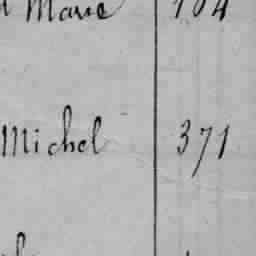 Marie 104
Michel 371